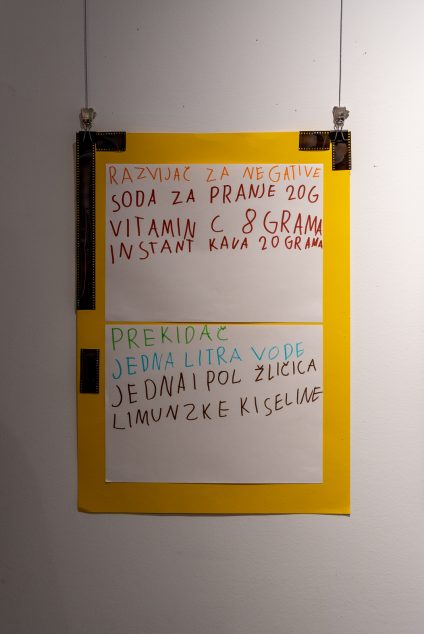 RAZVIJAČ ZA NEGATIVE
SODA ZA PRANJE 20G
VITAMIN C 8 GRAMA
INSTANT KAVA 20 GRAMA
PREKIDAČ
JEDNA LITRA VODE
JEDNA I POL ŽLIČICA
LIMUNZKE KISELINE